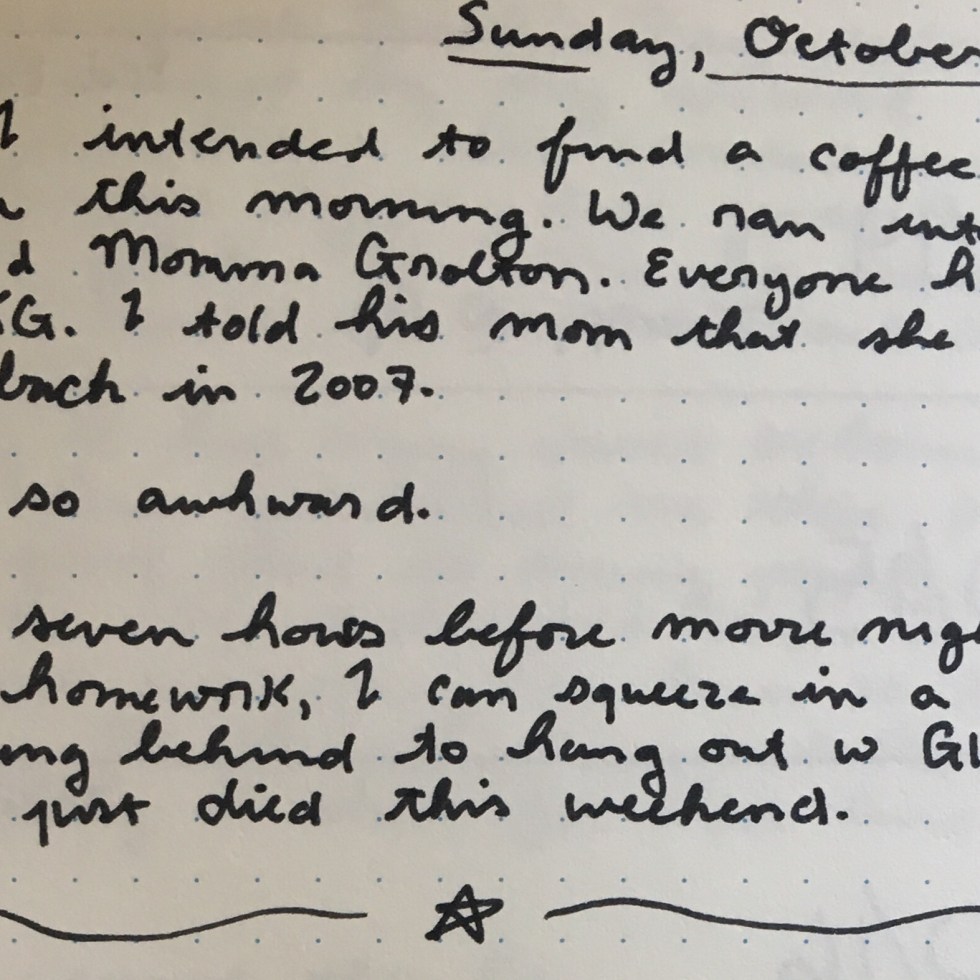 Sunday, October
I intended to find a coffee
this morning. We ran into
d Momma Grolton. Everyone h
KG. I told his mom that she
back in 2007.
so awkward.
seven hours before movie nig
homework, I can squeeze in a
ing behind to hang out w
just died this weekend.